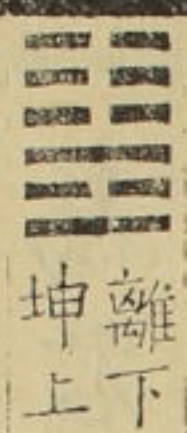 離下
坤上